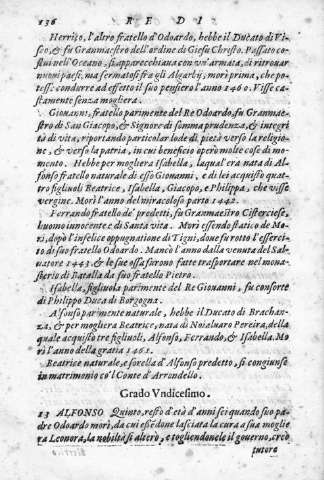 136 R E D I
Herrigo, l'altro fratello d'Odoardo, hebbe il Ducato di Vi-
seo, & fu Granmaestro dell'ordine di Giesu Christo. Passato co-
stui nell'Oceano, si apparecchiaua con vn'armata, di ritrouar
nuoui paesi, ma fermatosi fra gli Algarbij, morì prima, che po-
tesse condurre ad effetto il suo pensiero l'anno 1460. Visse ca-
stamente senza mogliera.
Giouanni, fratello parimente del Re Odoardo, fu Granmae-
stro di San Giacopo, & Signore di somma prudenza, & integri
tà di vita, riportando particolar lode di pietà verso la religio-
ne, & verso la patria, in cui beneficio operò molte cose di mo-
mento. Hebbe per mogliera Isabella, laqual era nata di Al-
fonso fratello naturale di esso Giouanni, e di lei acquisto quat-
tro figliuoli Beatrice, Isabella, Giacopo, e Philippa, che visse
vergine. Morì l'anno del miracoloso parto 1442.
Ferrando fratello de' predetti, fu Granmaestro Cisterciese,
huomo innocente e di Santa vita. Morì essendo statico de Mo-
ri, dopò l'infelice oppugnatione di Tigni, doue fu rotto l'esserci-
to di suo fratello Odoardo. Mancò l'anno dalla venuta del Sal-
uatore 1443. & le sue ossa furono fatte trasportare nel mona-
sterio di Batalla da suo fratello Pietro.
Isabella, figliuola parimente del Re Giouanni, fu consorte
di Philippo Duca di Borgogna.
Alfonso parimente naturale, hebbe il Ducato di Brachan-
za, & per mogliera Beatrice, nata di Nuialuaro Pereira, della
quale acquisto tre figliuoli, Alfonso, Ferrando, & Isabella. Mo
rì l'anno della gratia 1461.
Beatrice naturale, e sorella d'Alfonso predetto, si congiunse
in matrimonio co'l Conte d'Arrondello.
Grado Vndecesimo.
13 ALFONSO Quinto, restò d'età d'anni sei quando suo pa-
dre Odoardo morì, da cui essedone lasciata la cura a sua moglie
ra Leonora, la nobiltà si alterò, e togliendonele il gouerno, creò
tutore